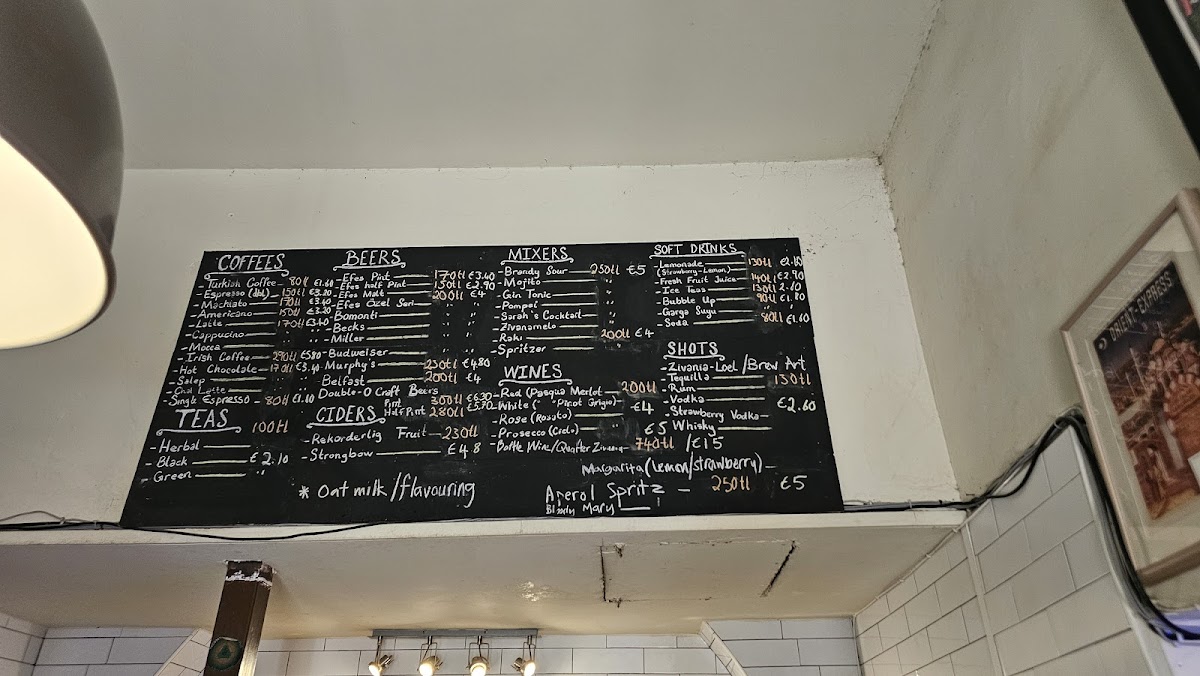 COFFEES
- Turkish Coffee — 80tl €1.60
- Espresso (dbl) — 150tl €3.20
- Machiato — 170tl €3.40
- Americano — 150tl €3.20
- Latte — 170tl €3.40
- Cappucino — " "
- Mocca — " "
- Irish Coffee — 290tl €5.80
- Hot Chocolate — 170tl €3.40
- Salep — " "
- Chai Latte — " "
- Single Espresso — 80tl
TEAS 100tl
- Herbal
- Black — €2.10
- Green — "
BEERS
- Efes Pint — 170tl €3.40
- Efes half Pint — 150tl €2.90
- Efes Malt — 200tl €4
- Efes Özel Seri — " "
- Bomonti — " "
- Becks — " "
- Miller — " "
- Budweiser — " "
- Murphy's — 230tl €4.80
- Belfast — 200tl €4
Double-O Craft Beers
Pint 300tl €6.30
Half Pint 280tl €5.70
CIDERS
- Rekorderlig Fruit — 230tl
- Strongbow — €4.8
* Oat milk/flavouring
MIXERS
- Brandy Sour — 250tl €5
- Mojito — "
- Gin Tonic — "
- Pompei — "
- Sarah's Cocktail — "
- Zivanamelo — "
- Raki — 200tl €4
- Spritzer — "
WINES
- Red (Pasqua Merlot — 200tl
- White (" "Pinot Grigio) — €4
- Rose (Rosato) — "
- Prosecco (Cielo) — €5
- Bottle Wine/Quarter Zivania — 740tl/€15
Margarita (Lemon/strawberry) —
Aperol Spritz — 250tl €5
Bloody Mary
SOFT DRINKS
- Lemonade — 130tl
(Strawberry-Lemon)
- Fresh Fruit Juice — 140tl €2.90
- Ice Teas — 130tl
- Bubble Up — 90tl €1.80
- Garga Suyu — "
- Soda — 80tl €1.60
SHOTS
- Zivania - Loel/Brew Art
- Tequilla — 130tl
- Rum
- Vodka — €2.60
- Strawberry Vodka —
- Whisky
ORIENT-EXPRESS